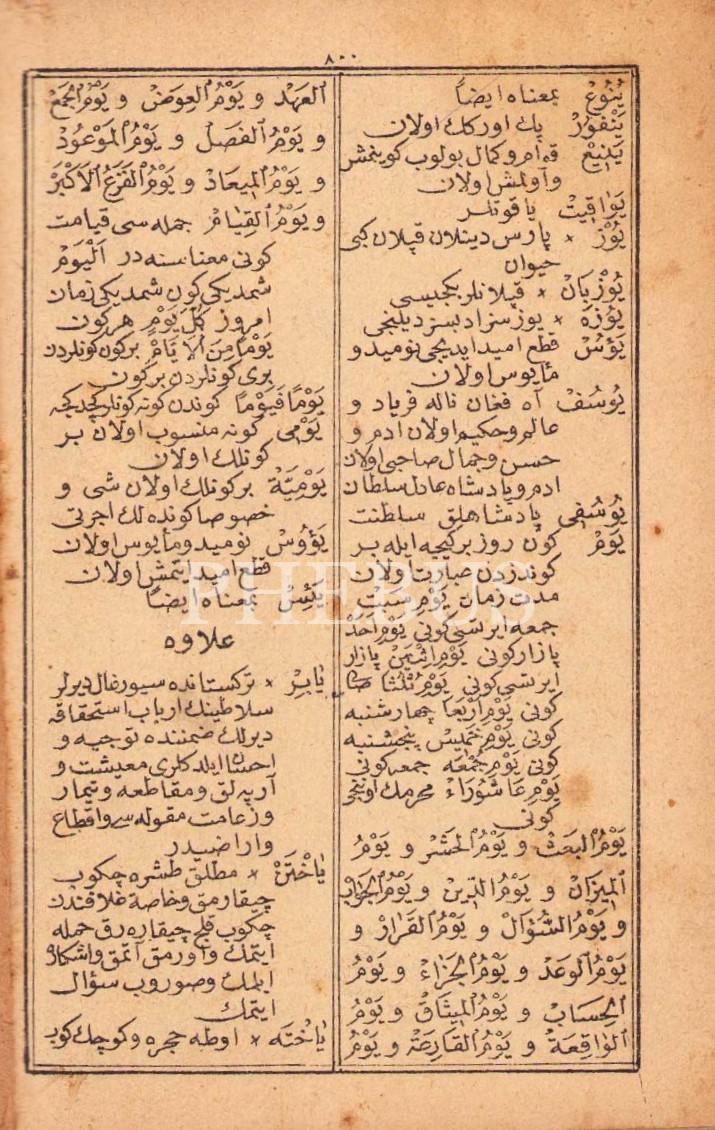 ٨٠٠
يُنُوعْ بمعناه ايضاً
يَنْفُورْ پك اوركك اولان
يَنِيعْ قه امر و كمال بولوب كورينمش
و اولمش اولان
يَوَاقِيتْ ياقوتلر
يُوزْ × پارس ديتلان قپلان كبى
حيوان
يُوزْبَانْ × قپلانلر بكجيسى
يُوزَه × يوز سزاد بسز ديلنجى
يَؤُسْ قطع اميد ايديجى نوميد و
مأيوس اولان
يُوسُفْ آه فغان ناله فرياد و
عالم و حكيم اولان ادم و
حسن و جمال صاحبى اولان
ادم و پادشاه عادل سلطان
يُوسُفِى پادشاهلق سلطنت
يَوْمْ كون روز بر كيجه ايله بر
كوندزدن عبارت اولان
مدت زمان يَوْمِ سَبْت
جمعه ايرتسى كونى يَوْمِ اَحَدْ
پازار كونى يَوْمِ اِثْنَيْن پازار
ايرتسى كونى يَوْمِ ثُلَثَا صالى
كونى يَوْمِ اَرْبَعَا چهارشنبه
كونى يَوْمِ خَمِيسْ پنجشنبه
كونى يَوْمِ جُمْعَه جمعه كونى
يَوْمِ عَاشُورَاءْ محرمك اوننجى
كونى
يَوْمُ البَعَثْ و يَوْمُ الحَشَرْ و يَوْمُ
المِيزَانْ و يَوْمُ الدِّينْ و يَوْمُ الجَوَابْ
و يَوْمُ السُّؤَالْ و يَوْمُ القَرَارْ و
يَوْمُ الوَعَدْ و يَوْمُ الجَزَاءْ و يَوْمُ
الحِسَابْ و يَوْمُ المِيثَاقْ و يَوْمُ
الوَاقِعَةْ و يَوْمُ القَارِعَةْ و يَوْمُ
العَهْدْ و يَوْمُ العِوَضْ و يَوْمُ الجَمَعْ
و يَوْمُ الفَصَلْ و يَوْمُ المَوْعُودْ
و يَوْمُ المِيعَادْ و يَوْمُ الفَزَعُ الاَكْبَرْ
و يَوْمُ القِيَامْ جمله سى قيامت
كونى معناسنه در اَلْيَوْمْ
شمديكى كون شمديكى زمان
امروز كُلَّ يَوْمٍ هر كون
يَوْماً مِنَ الاَيَّامْ بر كون كونلردن
برى كونلردن بر كون
يَوْماً فَيَوْماً كوندن كونه كونلر كچدكجه
يَوْمِى كونه منسوب اولان بر
كونلك اولان
يَوْمِيَّة بر كونلك اولان شى و
خصوصا كونده لك اجرتى
يَؤُوسْ نوميد و مأيوس اولان
قطع اميد ايتمش اولان
يَئِسْ بمعناه ايضاً
PHEBUS
علاوه
يَابِرْ × تركستانده سيورغال ديرلر
سلاطينك ارباب استحقاقه
ديرلك ضمننده توجيه و
احسان ايلدكلرى معيشت و
آرپه لق و مقاطعه و تيمار
و زعامت مقوله سى و اقطاع
و اراضيدر
يَاخْتَنْ × مطلق طشره چكوب
چيقارمق و خاصة غلافندن
چكوب قلج چيقاره رق حمله
ايتمك و آورمق آتمق و اشكاره
ايلمك و صوروب سؤال
ايتمك
يَاخْتَه × اوطه حجره و كوچك كوپ